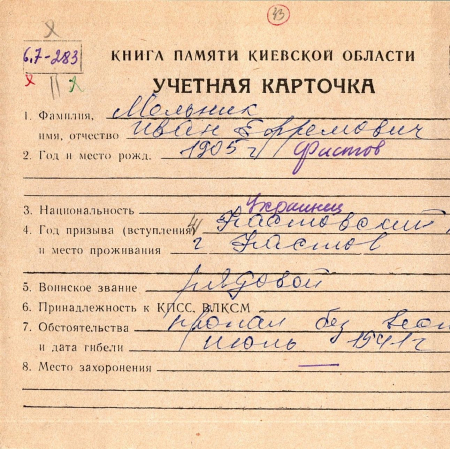 43
6.7-283
КНИГА ПАМЯТИ КИЕВСКОЙ ОБЛАСТИ
УЧЕТНАЯ КАРТОЧКА
1. Фамилия, Мольник
имя, отчество Иван Ефремович
2. Год и место рожд. 1905 г Фастов
3. Национальность Украинец
4. Год призыва (вступления) Фастовский
и место проживания г Фастов
5. Воинское звание рядовой
6. Принадлежность к КПСС, ВЛКСМ
7. Обстоятельства пропал без вест
и дата гибели июль 1941 г
8. Место захоронения —